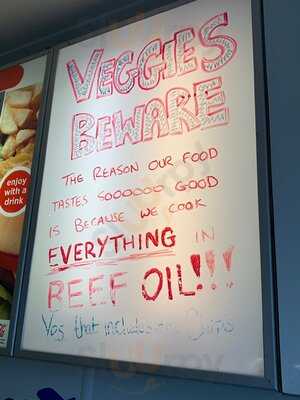 VEGGIES
BEWARE
THE REASON OUR FOOD
TASTES SOOOOOO GOOD
IS BECAUSE WE COOK
EVERYTHING IN
BEEF OIL!!!
that includes Chips
enjoy
with a
drink